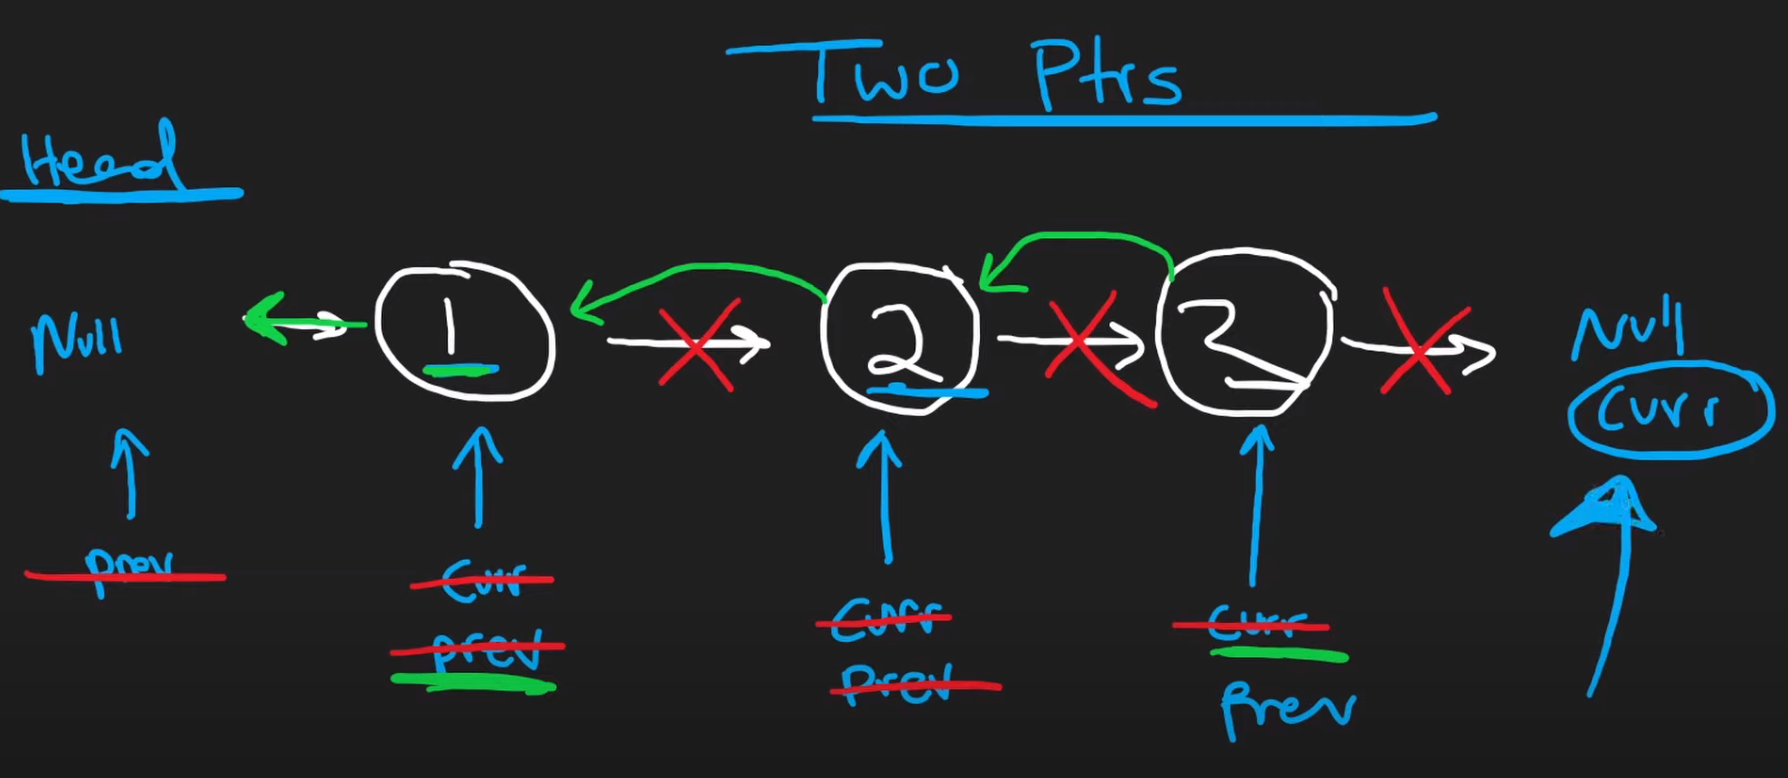 Two Ptrs
Head
Null 1 2 3 Null
Curr
prev Curr Curr Curr
prev Prev Prev